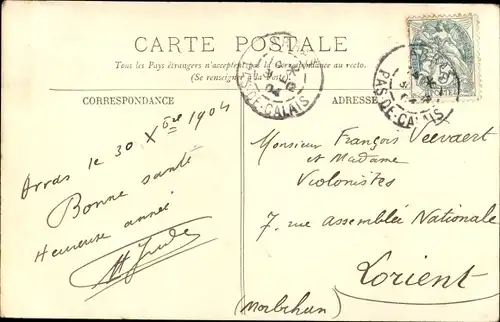 CARTE POSTALE
Tous les Pays étrangers n'acceptent pas la Correspondance au recto.
(Se renseigner à la Poste).
CORRESPONDANCE
ADRESSE
PAS-DE-CALAIS
PAS-DE-CALAIS
Arras le 30 Xbre 1904
Bonne santé
Heureuse année
Monsieur François Veevaert
et Madame
Violonistes
7, rue Assemblée Nationale
Lorient
(Morbihan)